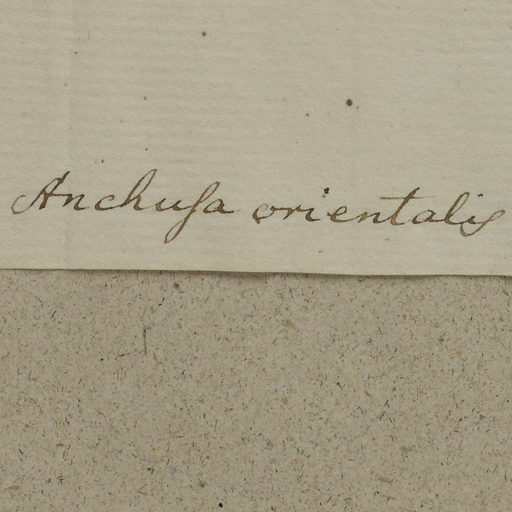 Anchuſa orientalis